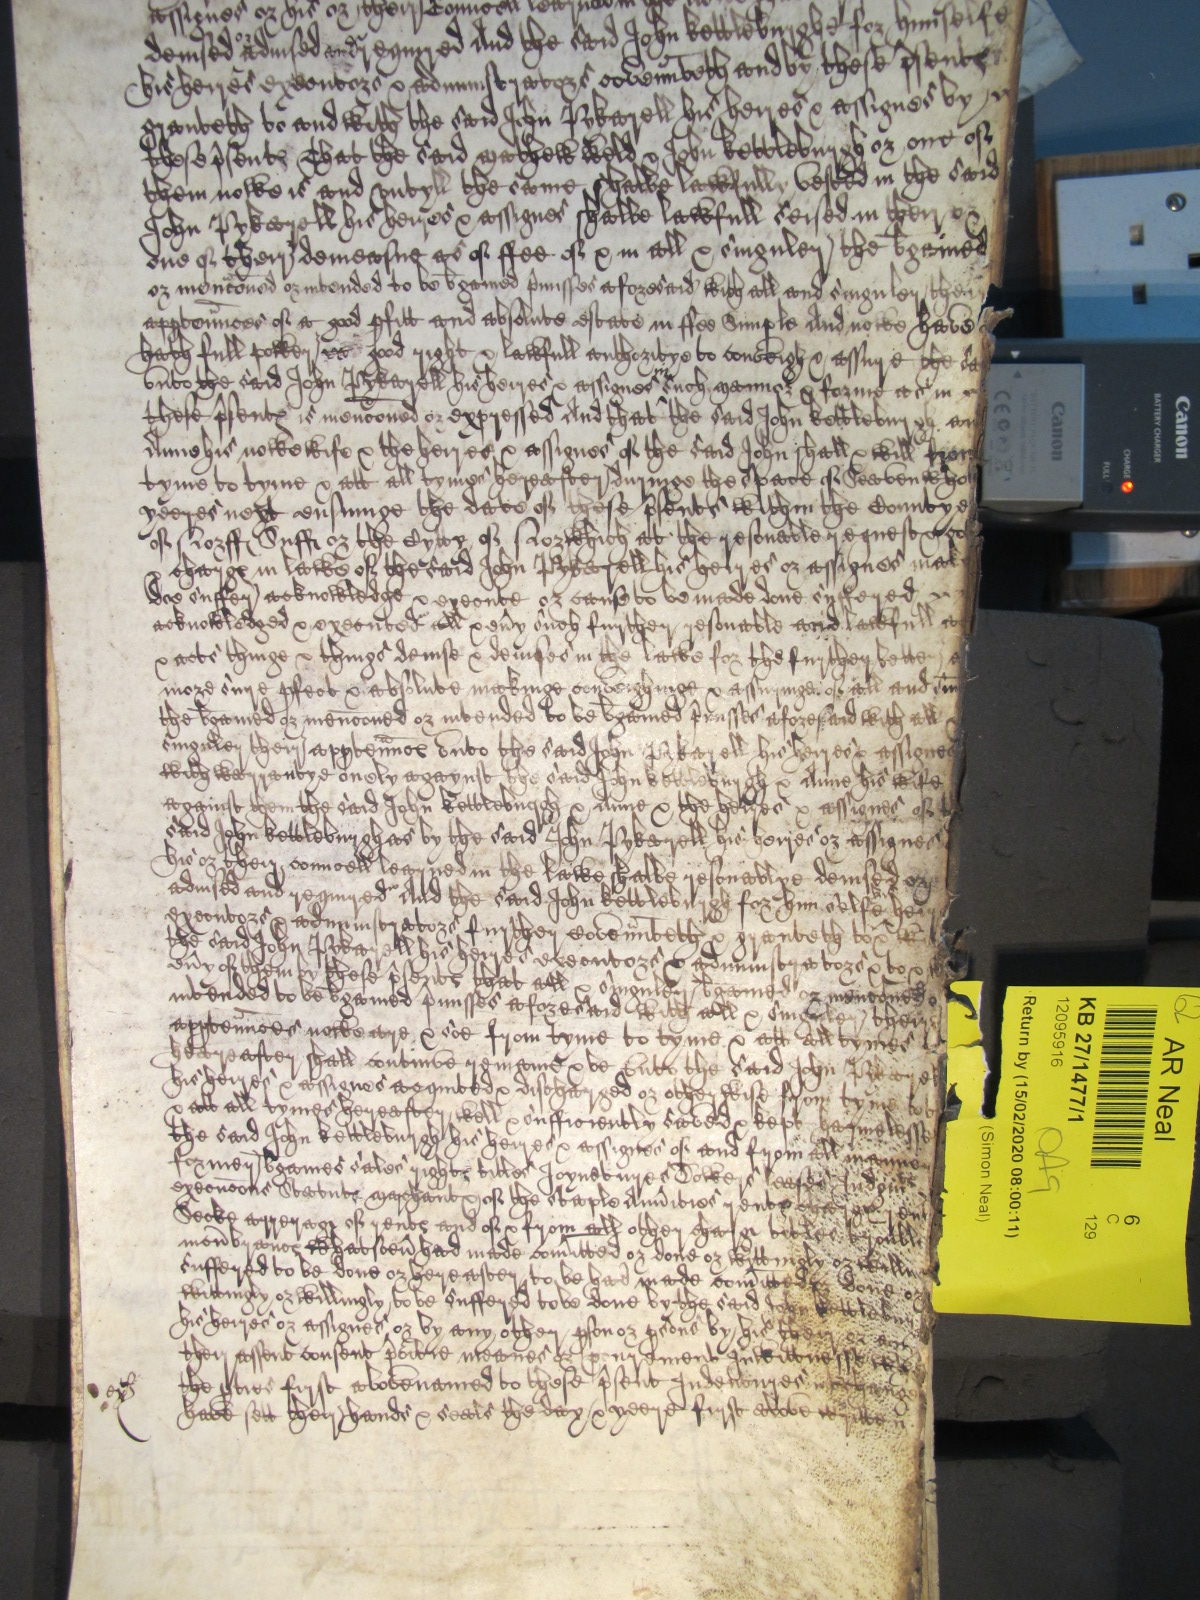 assignes or his or their Councell learned in the
demised or advised and required And the said John Kettleburghe for himselfe
his heires executors & administrators covennteth and by these psents
graunteth to and with the said John Pykarell his heires & assignes by
these psents that the said Mathew Weld & John Kettleburgh or one of
them nowe is and untyll the same shalbe lawfully vested in the said
John Pykarell his heires & assignes shalbe lawfull seised in their or
one of their demeasne as of ffee of & in all & singuler the bgained
or mencioned or intended to be bgained pmisses aforesaid with all and singuler their
apptennces of a good pfitt and absolute estate in ffee Simple And nowe have
hath full power good right & lawfull authoritye to conveigh & assure the
unto the said John Pykarell his heires & assignes in such manner & forme as in
these psents is mencioned or expressed And that the said John Kettleburgh and
Anne his nowe wife & the heires & assignes of the said John shall & will from
tyme to tyme & att all tymes hereafter duringe the space of Seaven
yeeres next ensuinge the date of these psents within the Countye
of Norff Suff or the Cyty of Norwich at the resonable request
& charge in lawe of the said John Pykarell his heires or assignes make
doe suffer acknowledge & execute or cause to be made done suffered
acknowledged & executed all & evy such further resonable and lawfull
& acts thinge & things devise & devises in the lawe for the further better
more sure pfect & absolute makinge conveighinge & assuringe of all and
the bgained or mencioned or intended to be bgained pmisses aforesaid with all
singuler their apptennces unto the said John Pykarell his heires & assignes
with warrantye onely agaynst the said John Kettleburgh & Anne his wife
against them the said John Kettleburgh & Anne & the heires & assignes of
said John Kettleburgh as by the said John Pykarell his heires or assignes
his or their councell learned in the lawe shalbe resonablye demised or
advised and required And the said John Kettleburgh for him selfe heires
executors & administrators further covennteth & graunteth to &
the said John Pykarell his heires executors & administrators & to &
evy of them by these psents that all & singuler bgained or mencioned
intended to be bgained pmisses aforesaid with all & singuler their
apptennces nowe are & soe from tyme to tyme & att all tymes
hereafter shall contine remaine & be unto the said John Pykarell
his heires & assignes acquited & discharged or otherwise from tyme to
& att all tymes hereafter well & sufficiently saved & kept harmelesse
the said John Kettleburgh his heires & assignes of and from all manner
former bgaines sales rights titles Joynctures Dowers leases
execucons Statuts marchant & of the staple Annuities rents
arrerages of rents and of & from all other chargs titles trouble
whatsoev had made comitted or done or wittingly or
suffered to be done or hereafter to be had made comitted or done or
wittingly or willingly to be suffered to be done by the said John Kettleburgh
his heires or assignes or by any other pson or psons by his their or any
their assent consent pcuremt In witnesse
the pties first abovenamed to these psent Indentures
have sett their hands & seals the day & yeere first above written
AR Neal
KB 27/1477/1
12095916
Return by (15/02/2020 08:00:11)
(Simon Neal)
6
C
129
Canon
BATTERY CHARGER
CHARGE
FULL
Canon